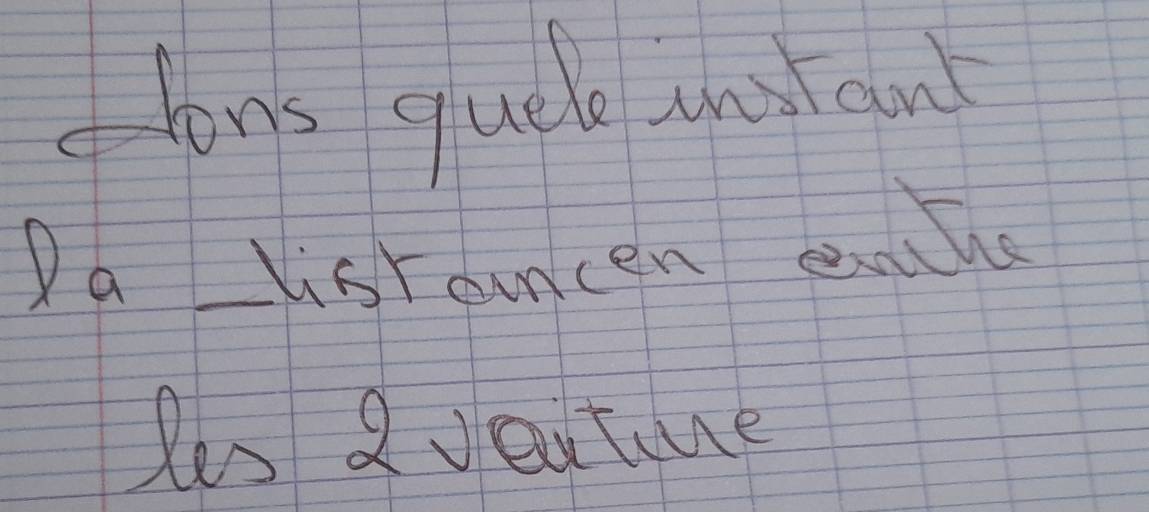 dans quele instant
la distancen entre
les 2 voiture